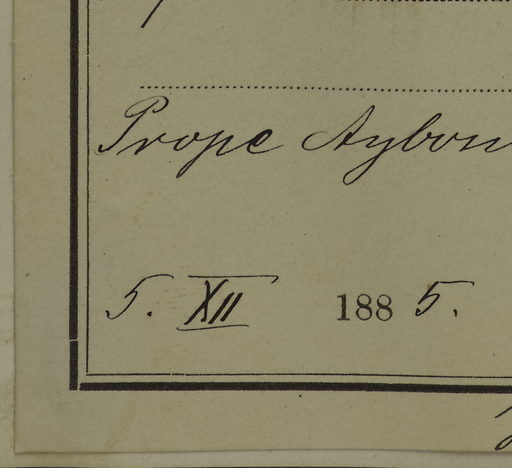 Prope Aybon
5. XII 1885.